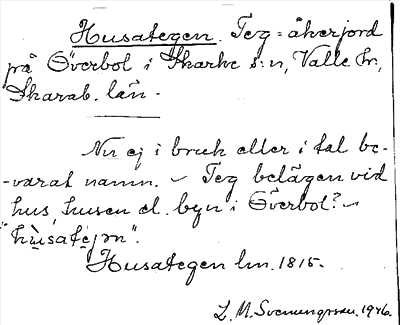 Husategen. Teg = åkerjord
på Överbol i Skarke s:n, Valle hr,
Skarab. län.
Nu ej i bruk eller i tal be-
-varat namn. – Teg belägen vid
hus, husen el. byn i Överbol? –
"husategen".
Husategen lm. 1815.
L. M. Svenungsson. 1946.